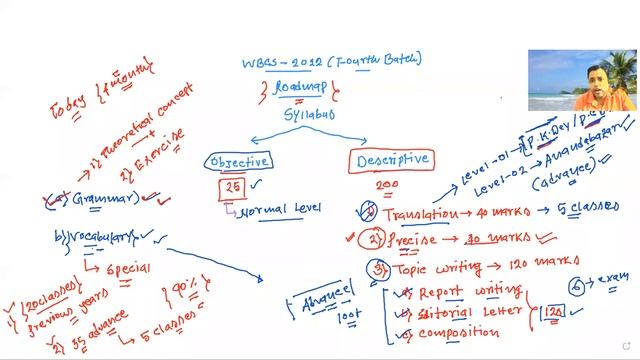 WBCS-2022 (Fourth Batch)
} Roadmap {
Syllabus
Today {1 month}
→ 1) Theoretical concept
+
2) Exercise
Objective
25 ✓
→ Normal Level
(a) Grammar) ✓ ✓
b) Vocabulary} ✓ ✓
→ Special
✓ 1) {20 classes}
Previous years
✓ 2) 35 advance
→ 5 classes
{90%}
Descriptive
200
Level-01 → [P.K.Dey / P.
Level-02 → Anandabazar ✓
(advance) ✓
1) Translation → 40 marks → 5 classes
2) Precise → 40 marks ✓
3) Topic writing → 120 marks
{Advance}
100+
a) Report writing
b) Editorial Letter
c) composition
} 120 ✓
6 → exam